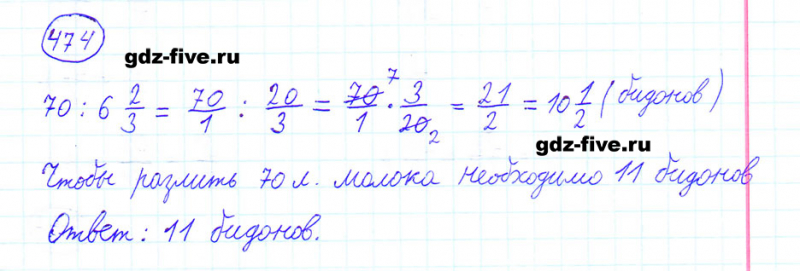 474
gdz-five.ru
70 : 6 2/3 = 70/1 : 20/3 = 70/1 7 · 3/20 2 = 21/2 = 10 1/2 (бидонов)
gdz-five.ru
Чтобы разлить 70 л. молока необходимо 11 бидонов
Ответ: 11 бидонов.